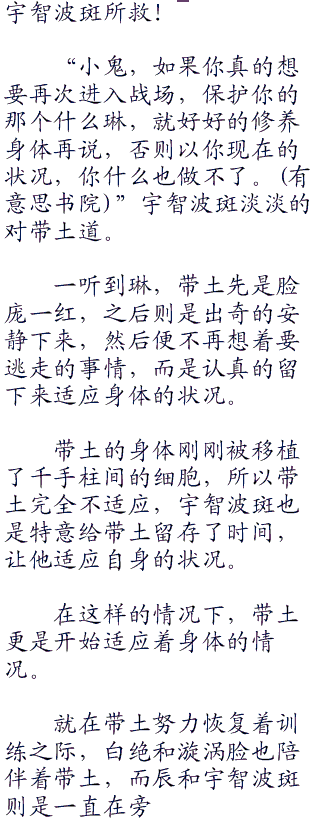 宇智波斑所救！
“小鬼，如果你真的想
要再次进入战场，保护你的
那个什么琳，就好好的修养
身体再说，否则以你现在的
状况，你什么也做不了。(有
意思书院)”宇智波斑淡淡的
对带土道。
一听到琳，带土先是脸
庞一红，之后则是出奇的安
静下来，然后便不再想着要
逃走的事情，而是认真的留
下来适应身体的状况。
带土的身体刚刚被移植
了千手柱间的细胞，所以带
土完全不适应，宇智波斑也
是特意给带土留存了时间，
让他适应自身的状况。
在这样的情况下，带土
更是开始适应着身体的情
况。
就在带土努力恢复着训
练之际，白绝和漩涡脸也陪
伴着带土，而辰和宇智波斑
则是一直在旁